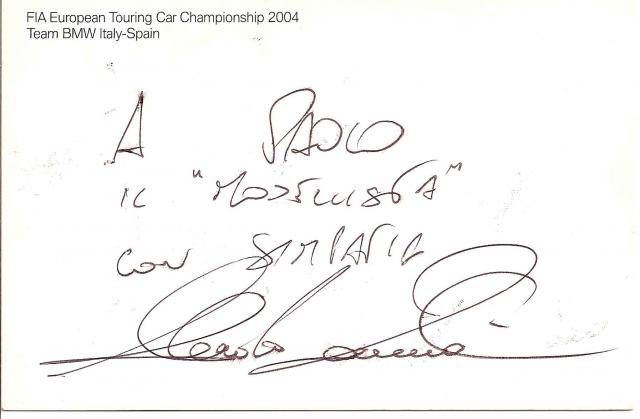 FIA European Touring Car Championship 2004
Team BMW Italy-Spain
A PAOLO
IL "MODELLISTA"
CON SIMPATIA